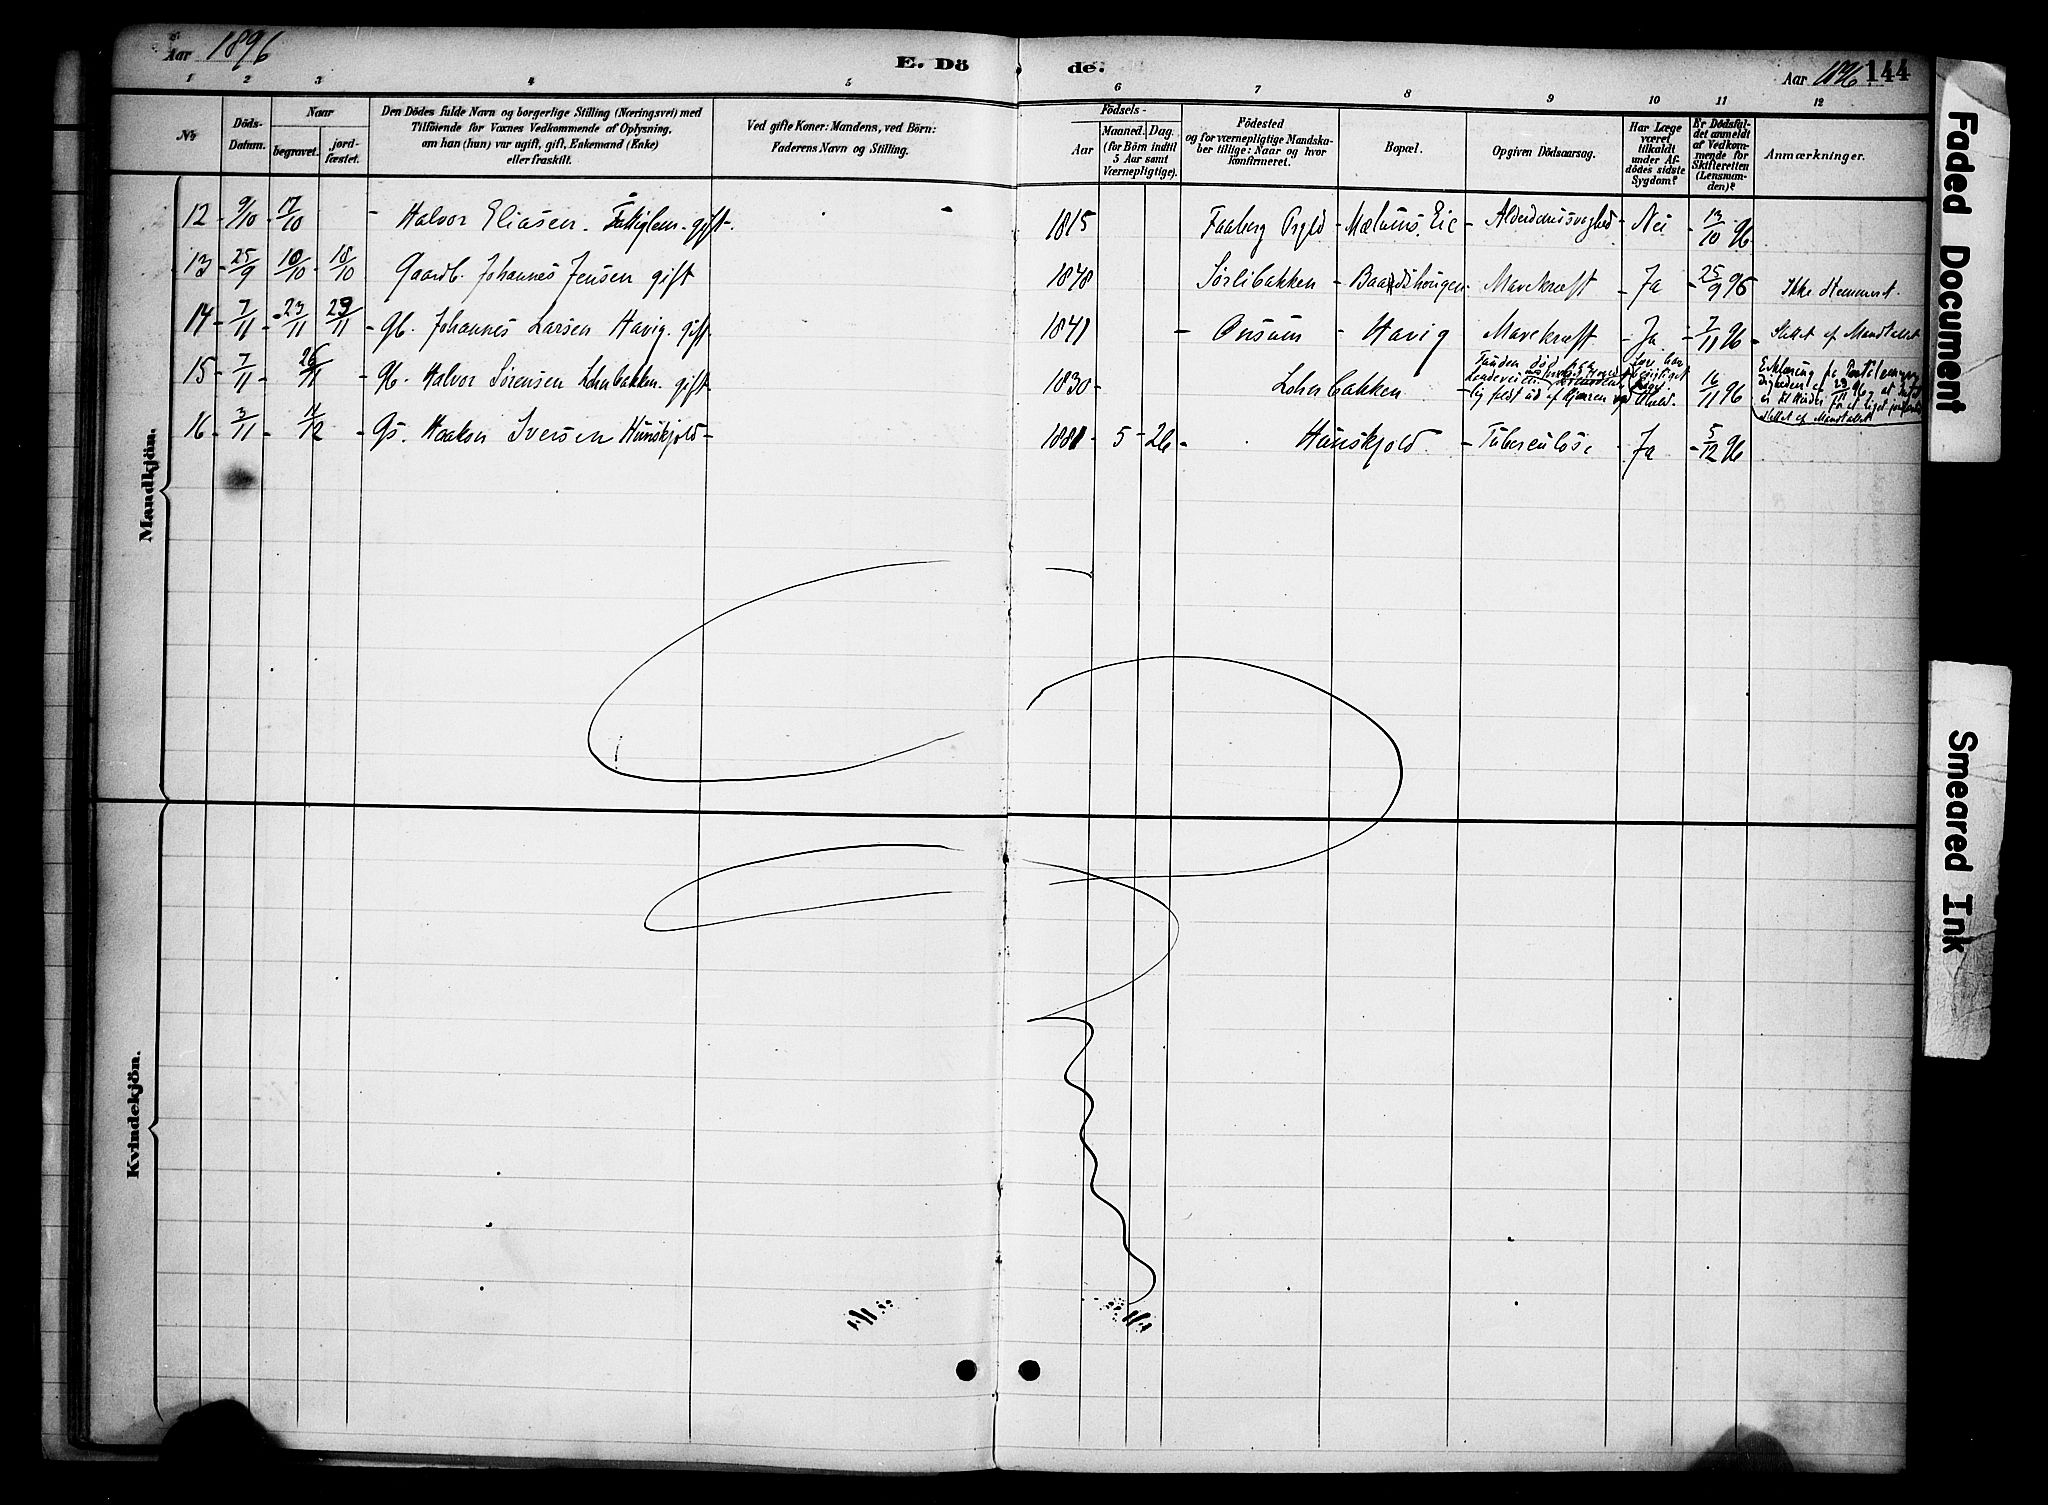 Aar 1896
E. Dö de.
Aar 1896 144
1 2 3 4 5 6 7 8 9 10 11 12
No
Döds-Datum.
Naar
begravet. jord-fæstet.
Den Dödes fulde Navn og borgerlige Stilling (Næringsvei) med
Tilföiende for Voxnes Vedkommende af Oplysning,
om han (hun) var ugift, gift, Enkemand (Enke)
eller fraskilt.
Ved gifte Koner: Mandens, ved Börn:
Faderens Navn og Stilling.
Födsels-
Aar
Maaned. Dag.
(for Börn indtil
5 Aar samt
Værnepligtige).
Födested
og for værnepligtige Mandska-
ber tillige: Naar og hvor
konfirmeret.
Bopæl.
Opgiven Dödsaarsag.
Har Læge
været
tilkaldt
under Af-
dödes sidste
Sygdom?
Er Dödsfal-
det anmeldt
af Vedkom-
mende for
Skifteretten
(Lensman-
den)?
Anmærkninger.
Mandkjön.
12 - 9/10 - 17/10 - Halvor Eliasen. gift. 1815 Faaberg Prgld - Mælums Eie - Alderdomssvaghed - Nei - 13/10 96
13 - 25/9 10/10 - 18/10 Gaardb. Johannes Jensen gift 1848 Sørlibakken - Baardshaugen - Mavekræft - Ja - 25/9 96 Ikke stemmet.
14 - 7/11 - 23/11 29/11 - Gb. Johannes Larsen Havig. gift. 1841 - Onsum - Havig Mavekræft - Ja - 7/11 96 - Slettet af Mandtallet
15 - 7/11 - 26/11 - Gb. Halvor Sørensen Loherbakken. gift - 1830 - Loherbakken Funden død Landeveien lig feldt ud af Kjærren 16/11 96 Erklæring fra at Slettet af Mandtallet
16 - 3/11 - 11/12 - Gs. Haakon Iversen Hunskjold - 1881 - 5 - 26 - Hunskjold. - Tuberculose - Ja - 5/12 96
Kvindekjön.
Faded Document
Smeared Ink